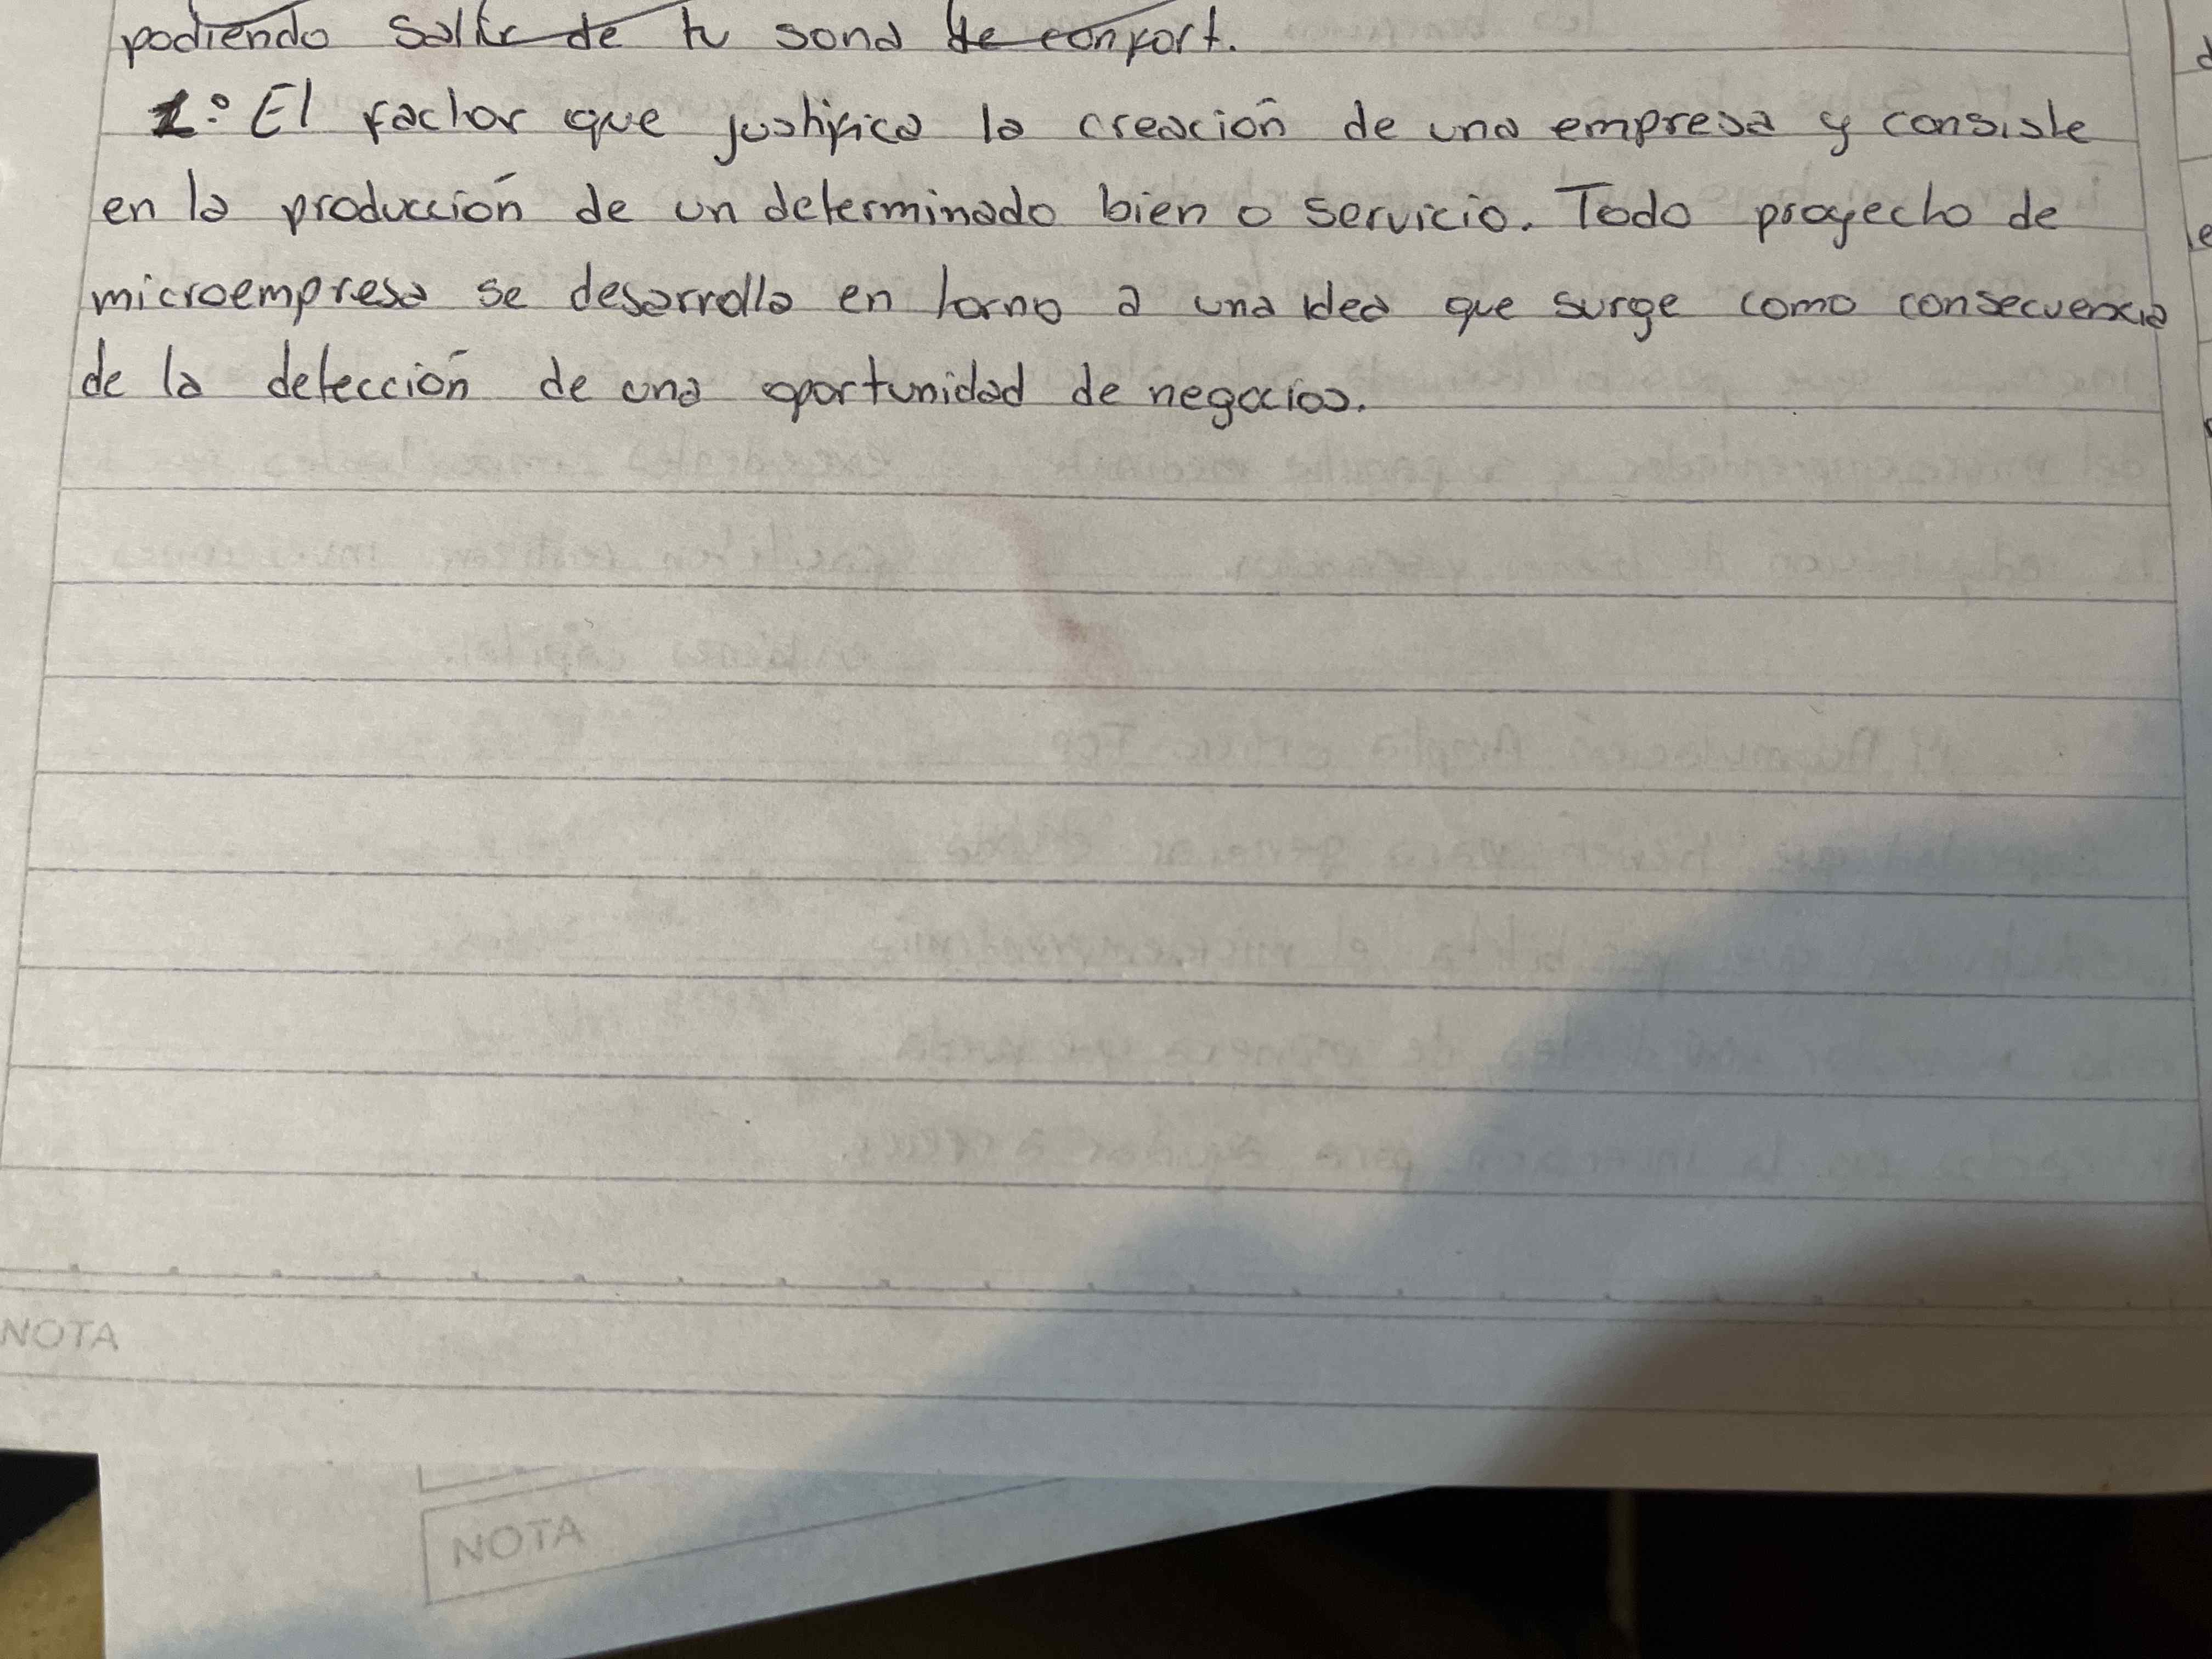 podiendo salir de tu sona de confort.
1: El factor que justifica la creación de una empresa y consiste
en la producción de un determinado bien o servicio. Todo proyecto de
microempresa se desarrolla en torno a una idea que surge como consecuencia
de la detección de una oportunidad de negocios.
NOTA
NOTA